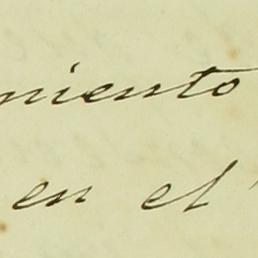 miento
en el